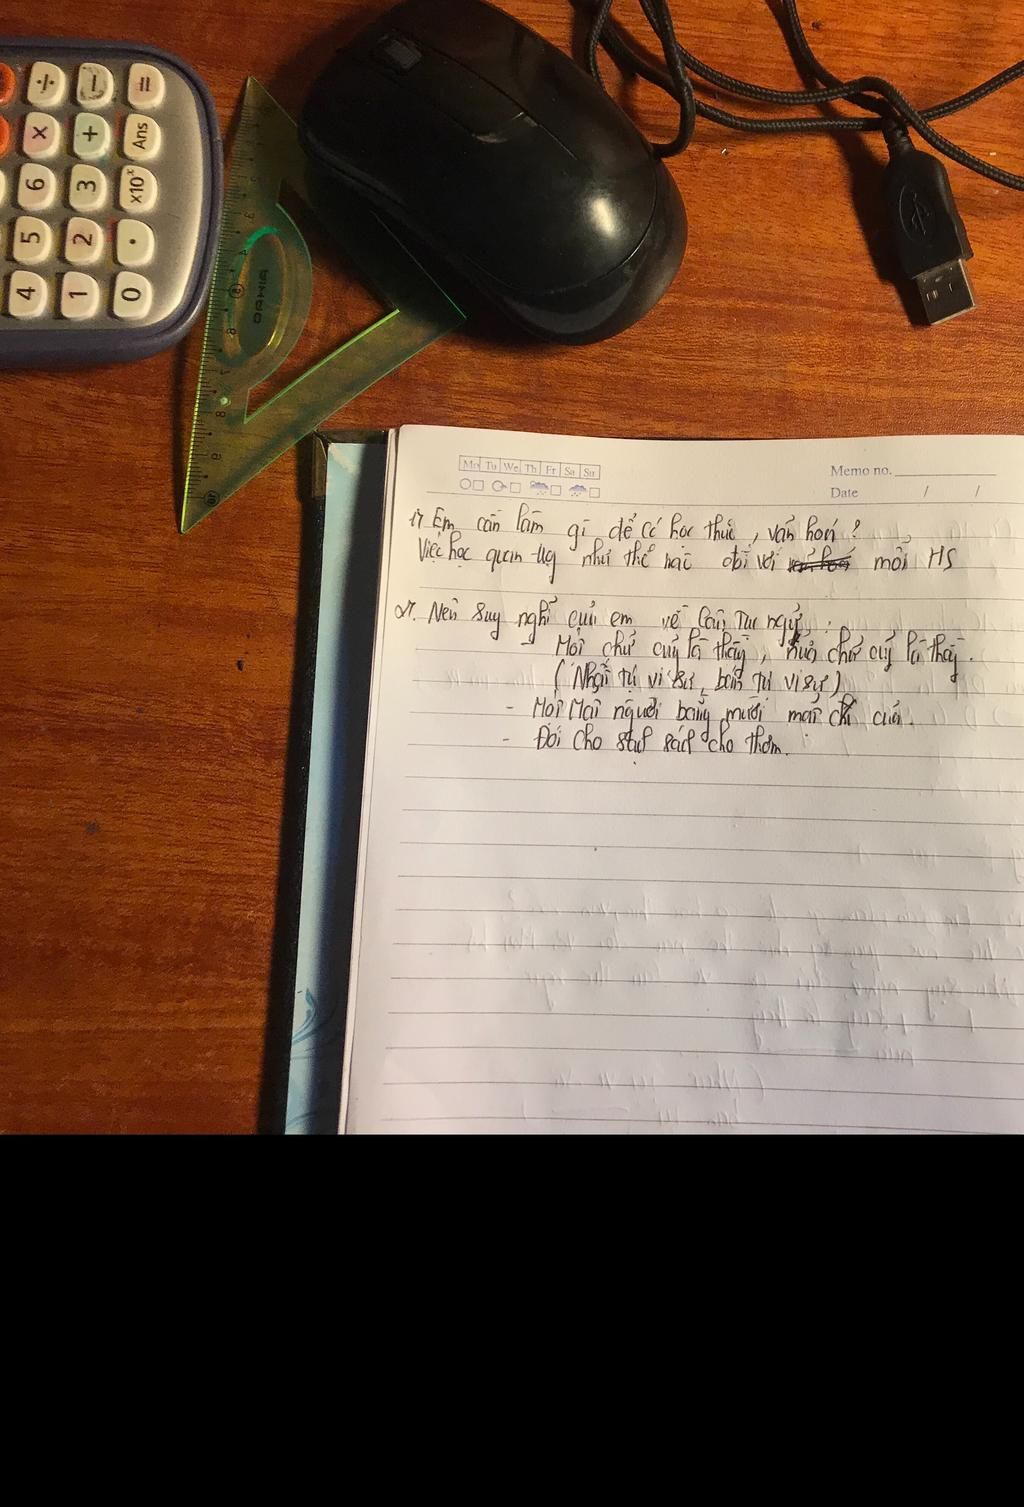 ÷ − =
× + Ans
6 3 ×10ˣ
5 2 •
4 1 0
Mo Tu We Th Fr Sa Su
Memo no.
Date / /
1, Em cần làm gì để có học thức, văn hoá?
Việc học quan trọng như thế nào đối với mỗi HS
2. Nêu suy nghĩ của em về câu tục ngữ:
- Một chữ cũng là thầy, nửa chữ cũng là thầy.
(Nhất tự vi sư, bán tự vi sư)
- Một Mặt người bằng mười mặt của.
- Đói cho sạch rách cho thơm.